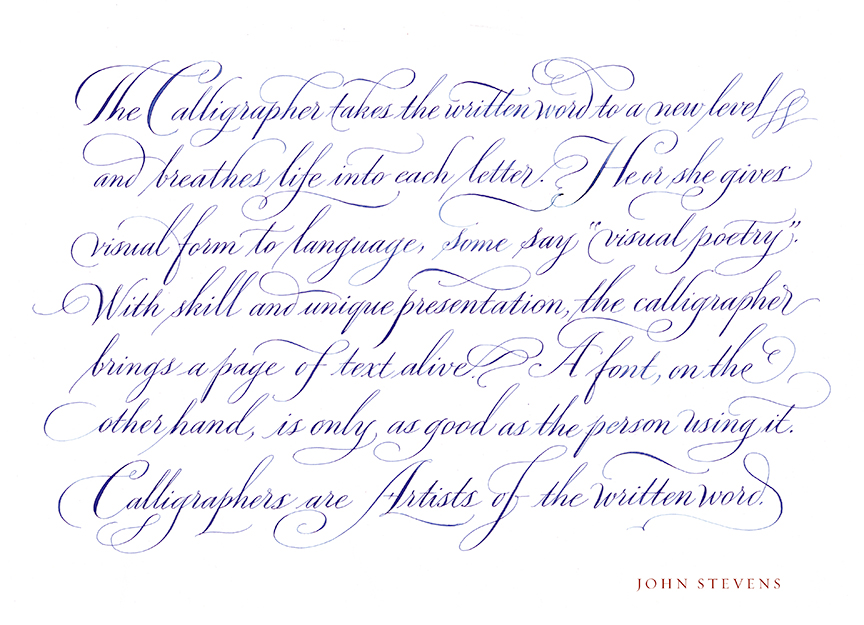 The Calligrapher takes the written word to a new level
and breathes life into each letter. He or she gives
visual form to language, some say "visual poetry".
With skill and unique presentation, the calligrapher
brings a page of text alive. A font, on the
other hand, is only as good as the person using it.
Calligraphers are Artists of the written word.
JOHN STEVENS